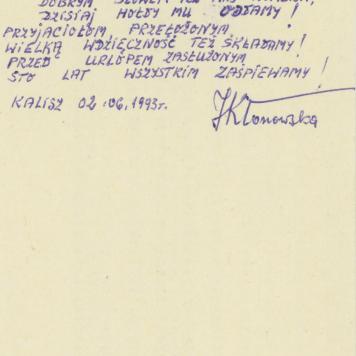 DOBRYM SŁOWEM TEŻ NAS
DZISIAJ HOŁDY MU ODDAMY!
PRZYJACIOŁOM, PRZEŁOŻONYM,
WIELKĄ WDZIĘCZNOŚĆ TEŻ SKŁADAMY!
PRZED URLOPEM ZASŁUŻONYM
STO LAT WSZYSTKIM ZAŚPIEWAMY!
KALISZ 02.06.1993r.
JKłonowska